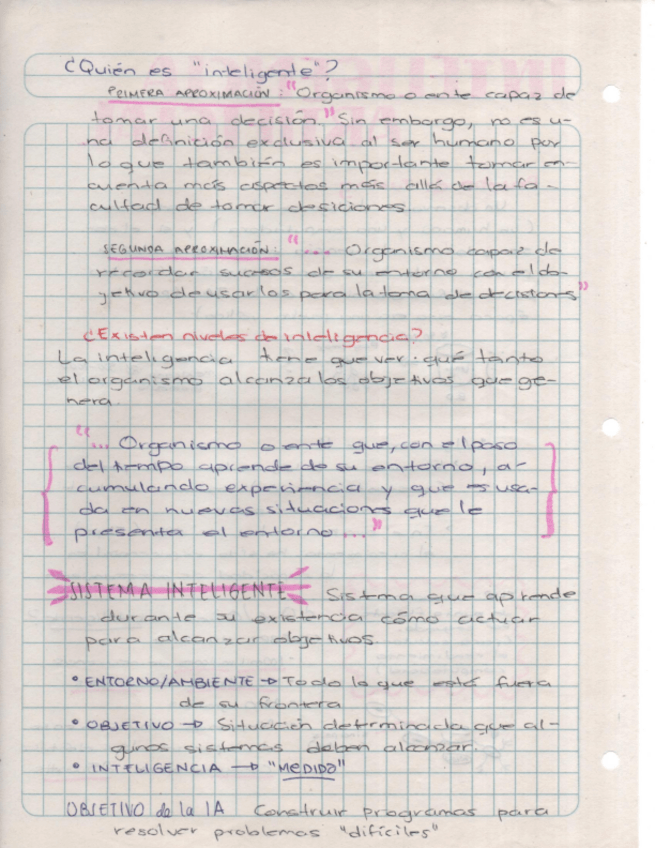 ¿Quién es "inteligente"?
PRIMERA APROXIMACIÓN: "Organismo o ente capaz de
tomar una decisión." Sin embargo, no es u-
na definición exclusiva al ser humano por
lo que también es importante tomar en
cuenta más aspectos más allá de la fa-
cultad de tomar desiciones
SEGUNDA APROXIMACIÓN: "... Organismo capaz de
recordar sucesos de su entorno con el ob-
jetivo de usarlos para la toma de decisions"
¿Existen niveles de inteligencia?
La inteligencia tiene que ver. qué tanto
el organismo alcanza los objetivos que ge-
nera.
"... Organismo o ente que, con el paso
del tiempo aprende de su entorno, a-
cumulando experiencia y que es usa-
da en nuevas situaciones que le
presenta el entorno ..."
SISTEMA INTELIGENTE Sistema que aprende
durante su existencia cómo actuar
para alcanzar objetivos.
• ENTORNO/AMBIENTE → Todo lo que está fuera
de su frontera
• OBJETIVO → Situación determinada que al-
gunos sistemas deben alcanzar.
• INTELIGENCIA → "MEDIDA"
OBJETIVO de la IA Construir programas para
resolver problemas "difíciles"